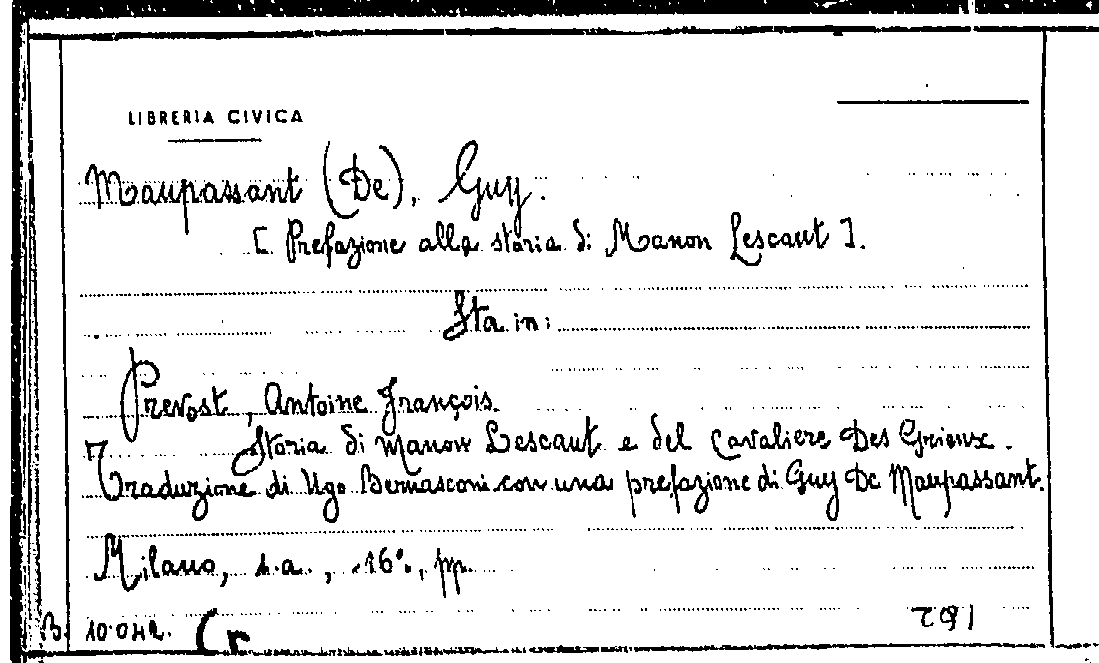 LIBRERIA CIVICA
Maupassant (De), Guy.
[ Prefazione alla storia di Manon Lescaut ].
Sta in:
Prevost, Antoine François.
Storia di Manon Lescaut e del Cavaliere Des Grieux.
Traduzione di Ugo Bernasconi con una prefazione di Guy De Maupassant.
Milano, s.a., 16°, pp.
B. 10.042.